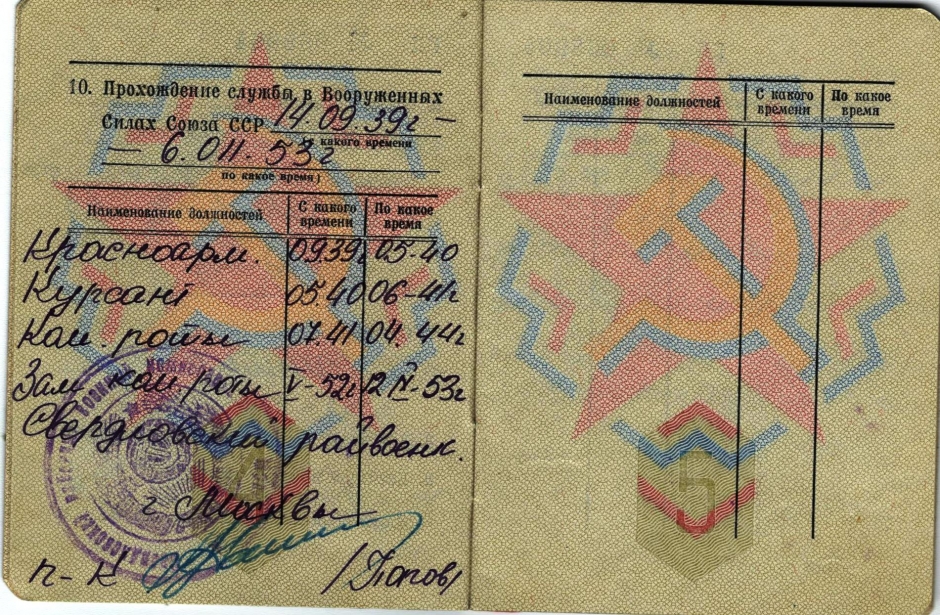 10. Прохождение службы в Вооруженных
Силах Союза ССР 14.09.39г –
(с какого времени
– 6.011.53г
по какое время)
Наименование должностей С какого времени По какое время
Красноарм. 09.39г 05-40
Курсант 05.40 06-41г
Ком. роты 07.41 04.44г
Зам. ком. роты V-52г 12 IV-53г
Свердловский райвоенк.
г Москвы
п-к /Попов/
4
Наименование должностей С какого времени По какое время
5